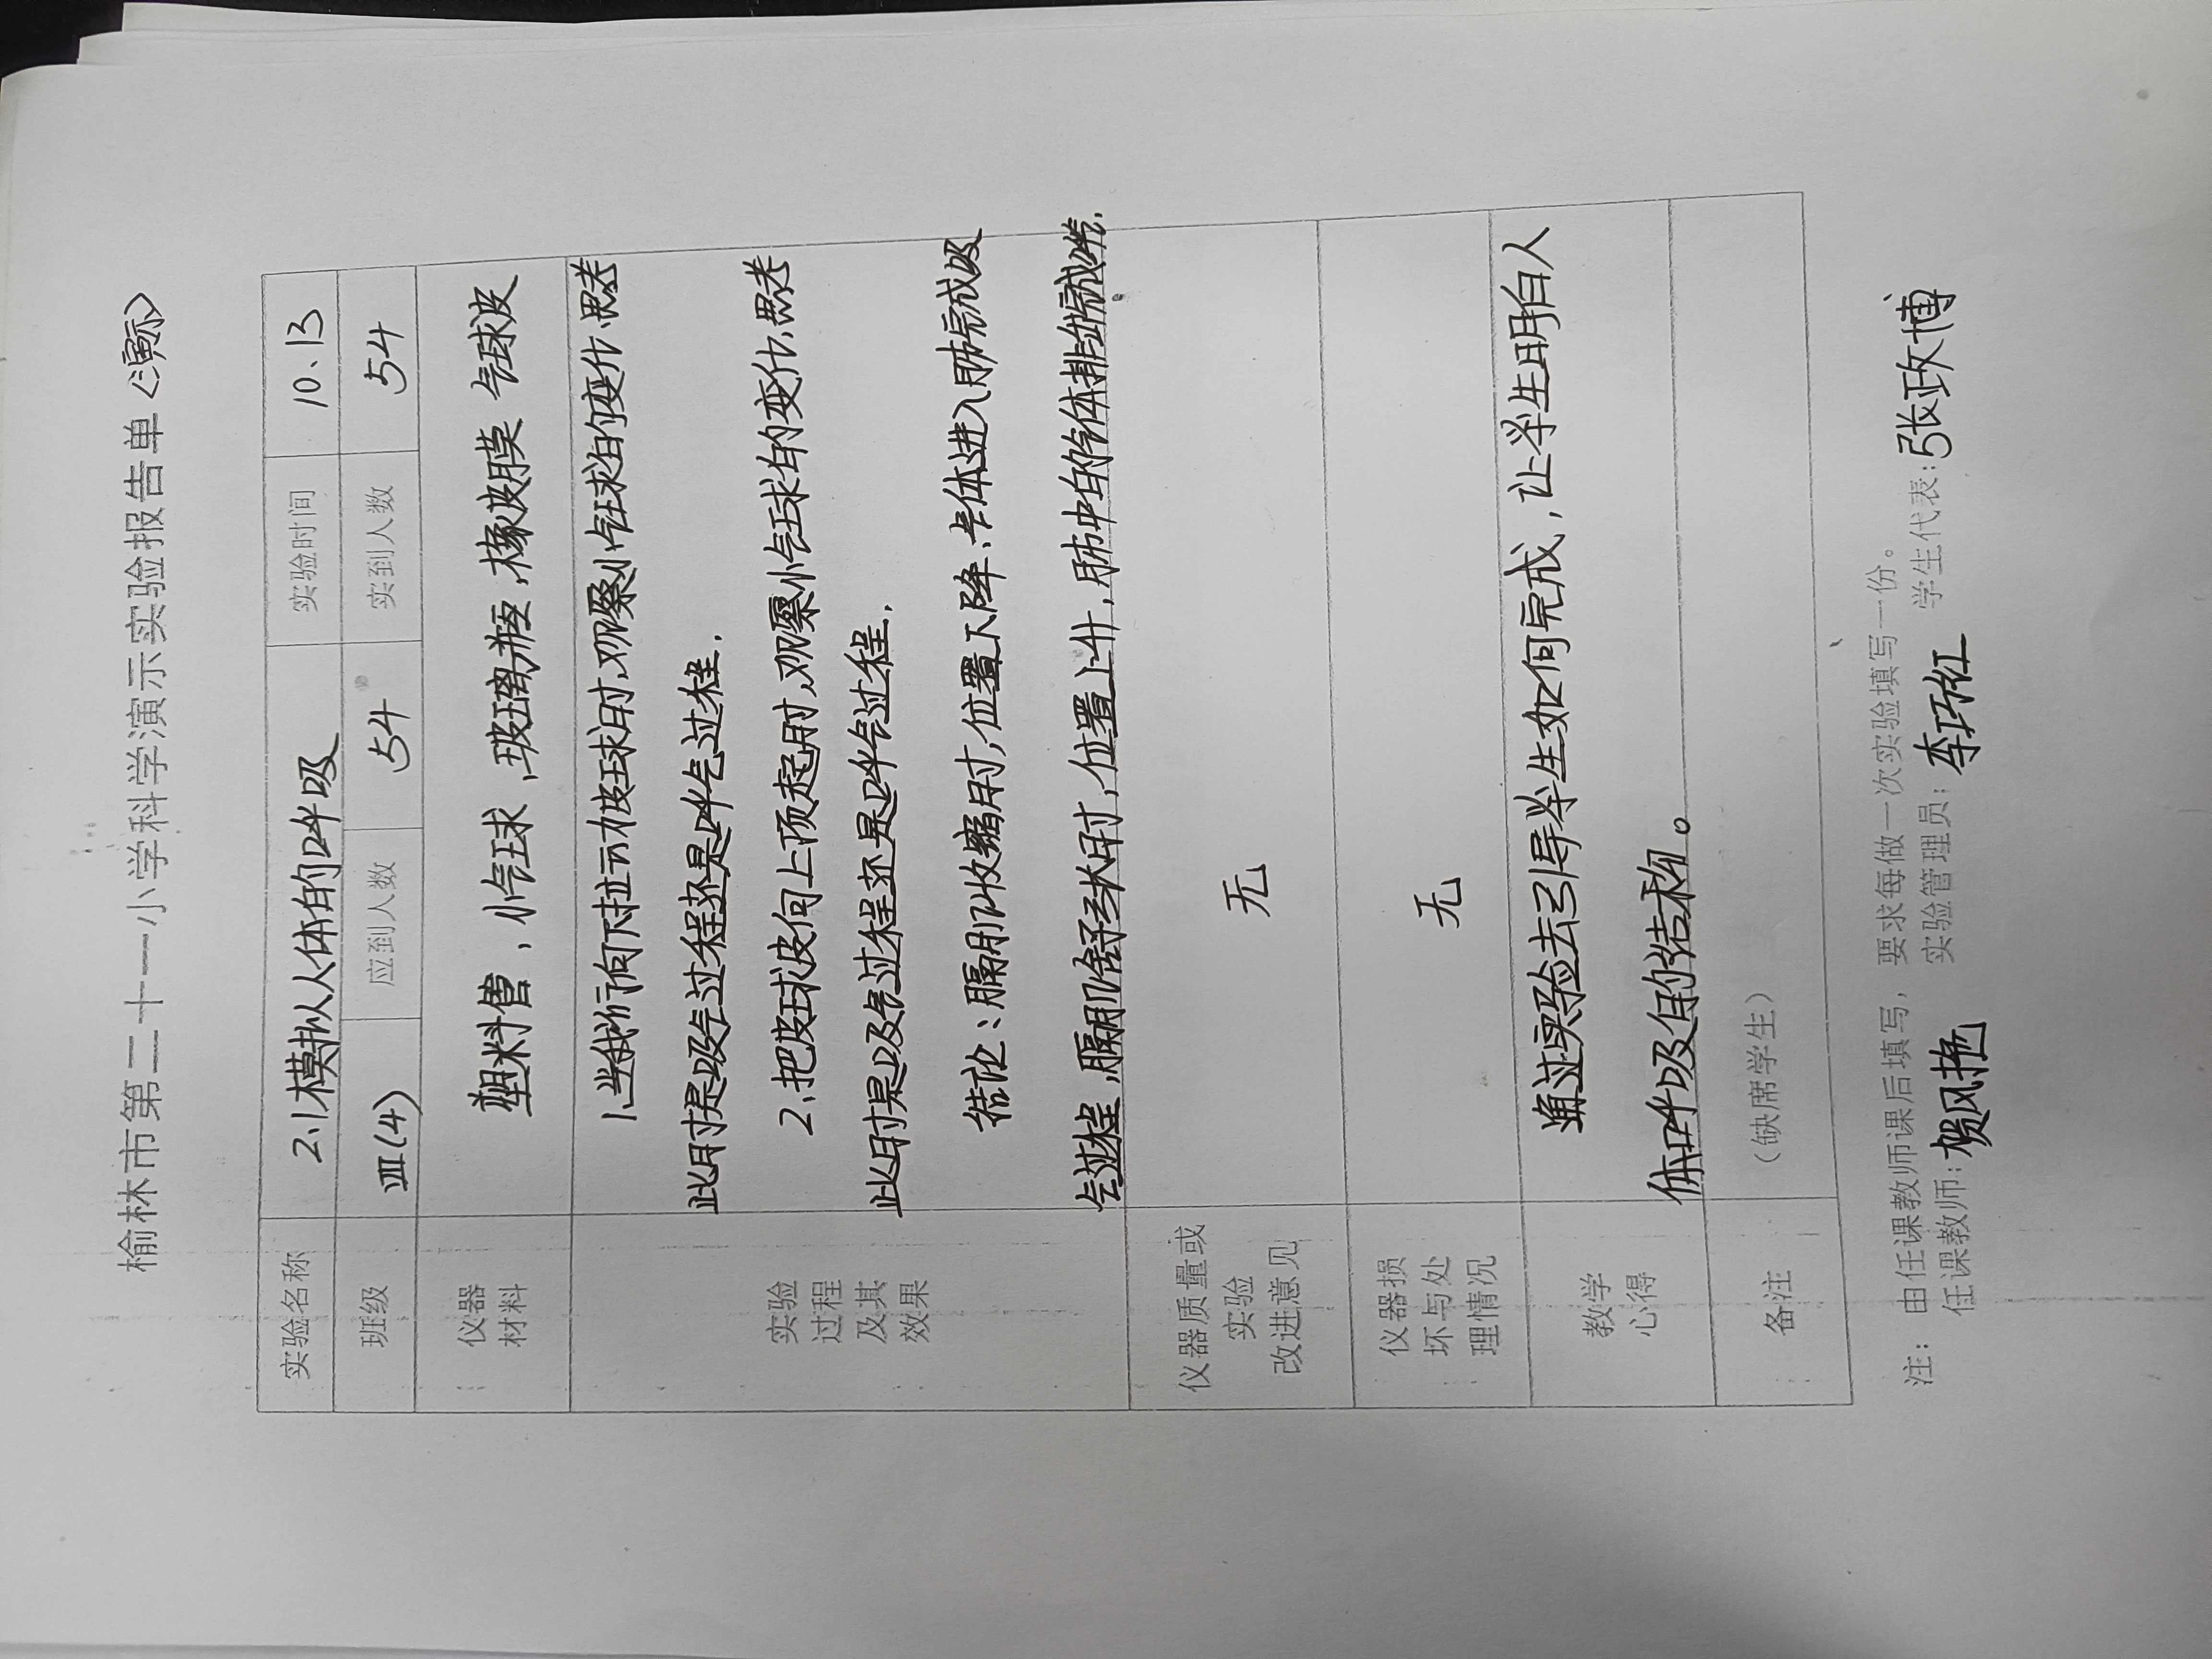 榆林市第二十一小学科学演示实验报告单〈演示〉
实验名称 2.1模拟人体的呼吸 实验时间 10、13
班级 四(4) 应到人数 54 实到人数 54
仪器
材料
塑料管，小气球，玻璃瓶，橡皮膜 气球皮
实验
过程
及其
效果
1、当我们向下拉动皮球时，观察小气球的变化，思考
此时是吸气过程还是呼气过程．
2、把皮球皮向上顶起时，观察小气球的变化，思考
此时是吸气过程还是呼气过程．
结论：膈肌收缩时，位置下降，气体进入肺完成吸
气过程，膈肌舒张时，位置上升，肺中的气体排出完成呼气．
仪器质量或
实验
改进意见
无
仪器损
坏与处
理情况
无
教学
心得
通过实验去引导学生如何完成，让学生明白人
体呼吸的结构。
备注
（缺席学生）
注：由任课教师课后填写，要求每做一次实验填写一份。
任课教师：贺风艳 实验管理员：李巧红 学生代表：张政博